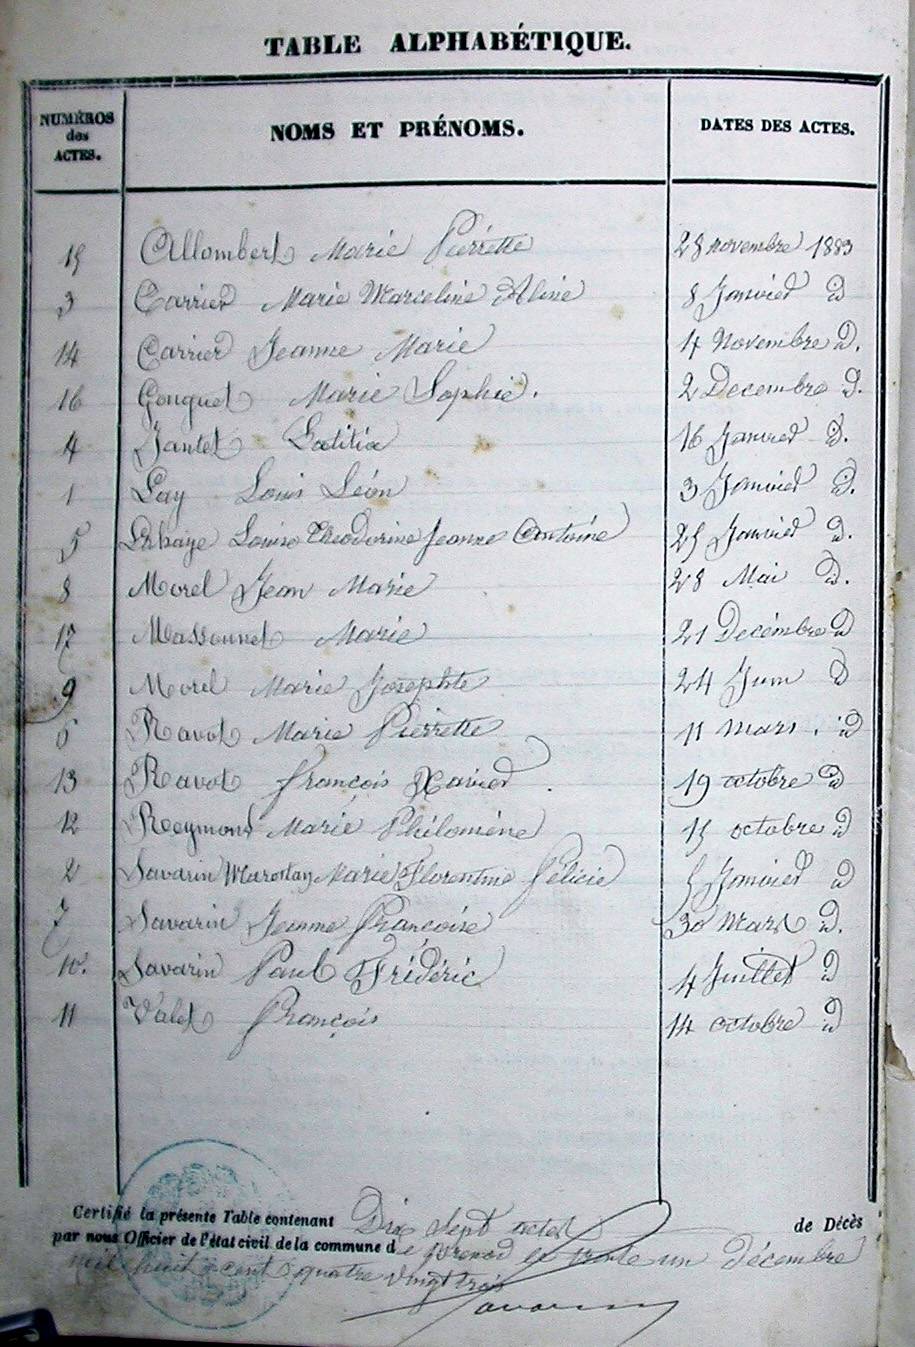 TABLE ALPHABÉTIQUE.
NUMÉROS
des
ACTES.
NOMS ET PRÉNOMS.
DATES DES ACTES.
15 Allombert Marie Pierrette 28 novembre 1883
3 Carrier Marie Marceline Aline 8 Janvier d
14 Carrier Jeanne Marie 4 Novembre d.
16 Gonguet Marie Sophie. 2 Decembre d.
4 Jantet Lœtitia 16 Janvier d.
1 Lay Louis Léon 3 Janvier d.
5 Lahaye Louise Théodorine Jeanne Antoine 25 Janvier d.
8 Morel Jean Marie 28 Mai d.
17 Massonnet Marie 21 Decémbre d
9 Morel Marie Josephte 24 Juin d
6 Ravot Marie Pierrette 11 Mars . d
13 Ravot François Xavier . 19 octobre d
12 Reymond Marie Philoméne 15 octobre d
2 Savarin Marie Florentine Félicie 5 Janvier d
7 Savarin Jeanne Françoise 30 Mars d.
10. Savarin Paul Frédéric 4 Juillet d
11 Valet François 14 octobre d
Certifié la présente Table contenant Dix sept actes de Décès
par nous Officier de l'état civil de la commune de le trente un décembre
mil huit cent quatre vingt trois
Savarin